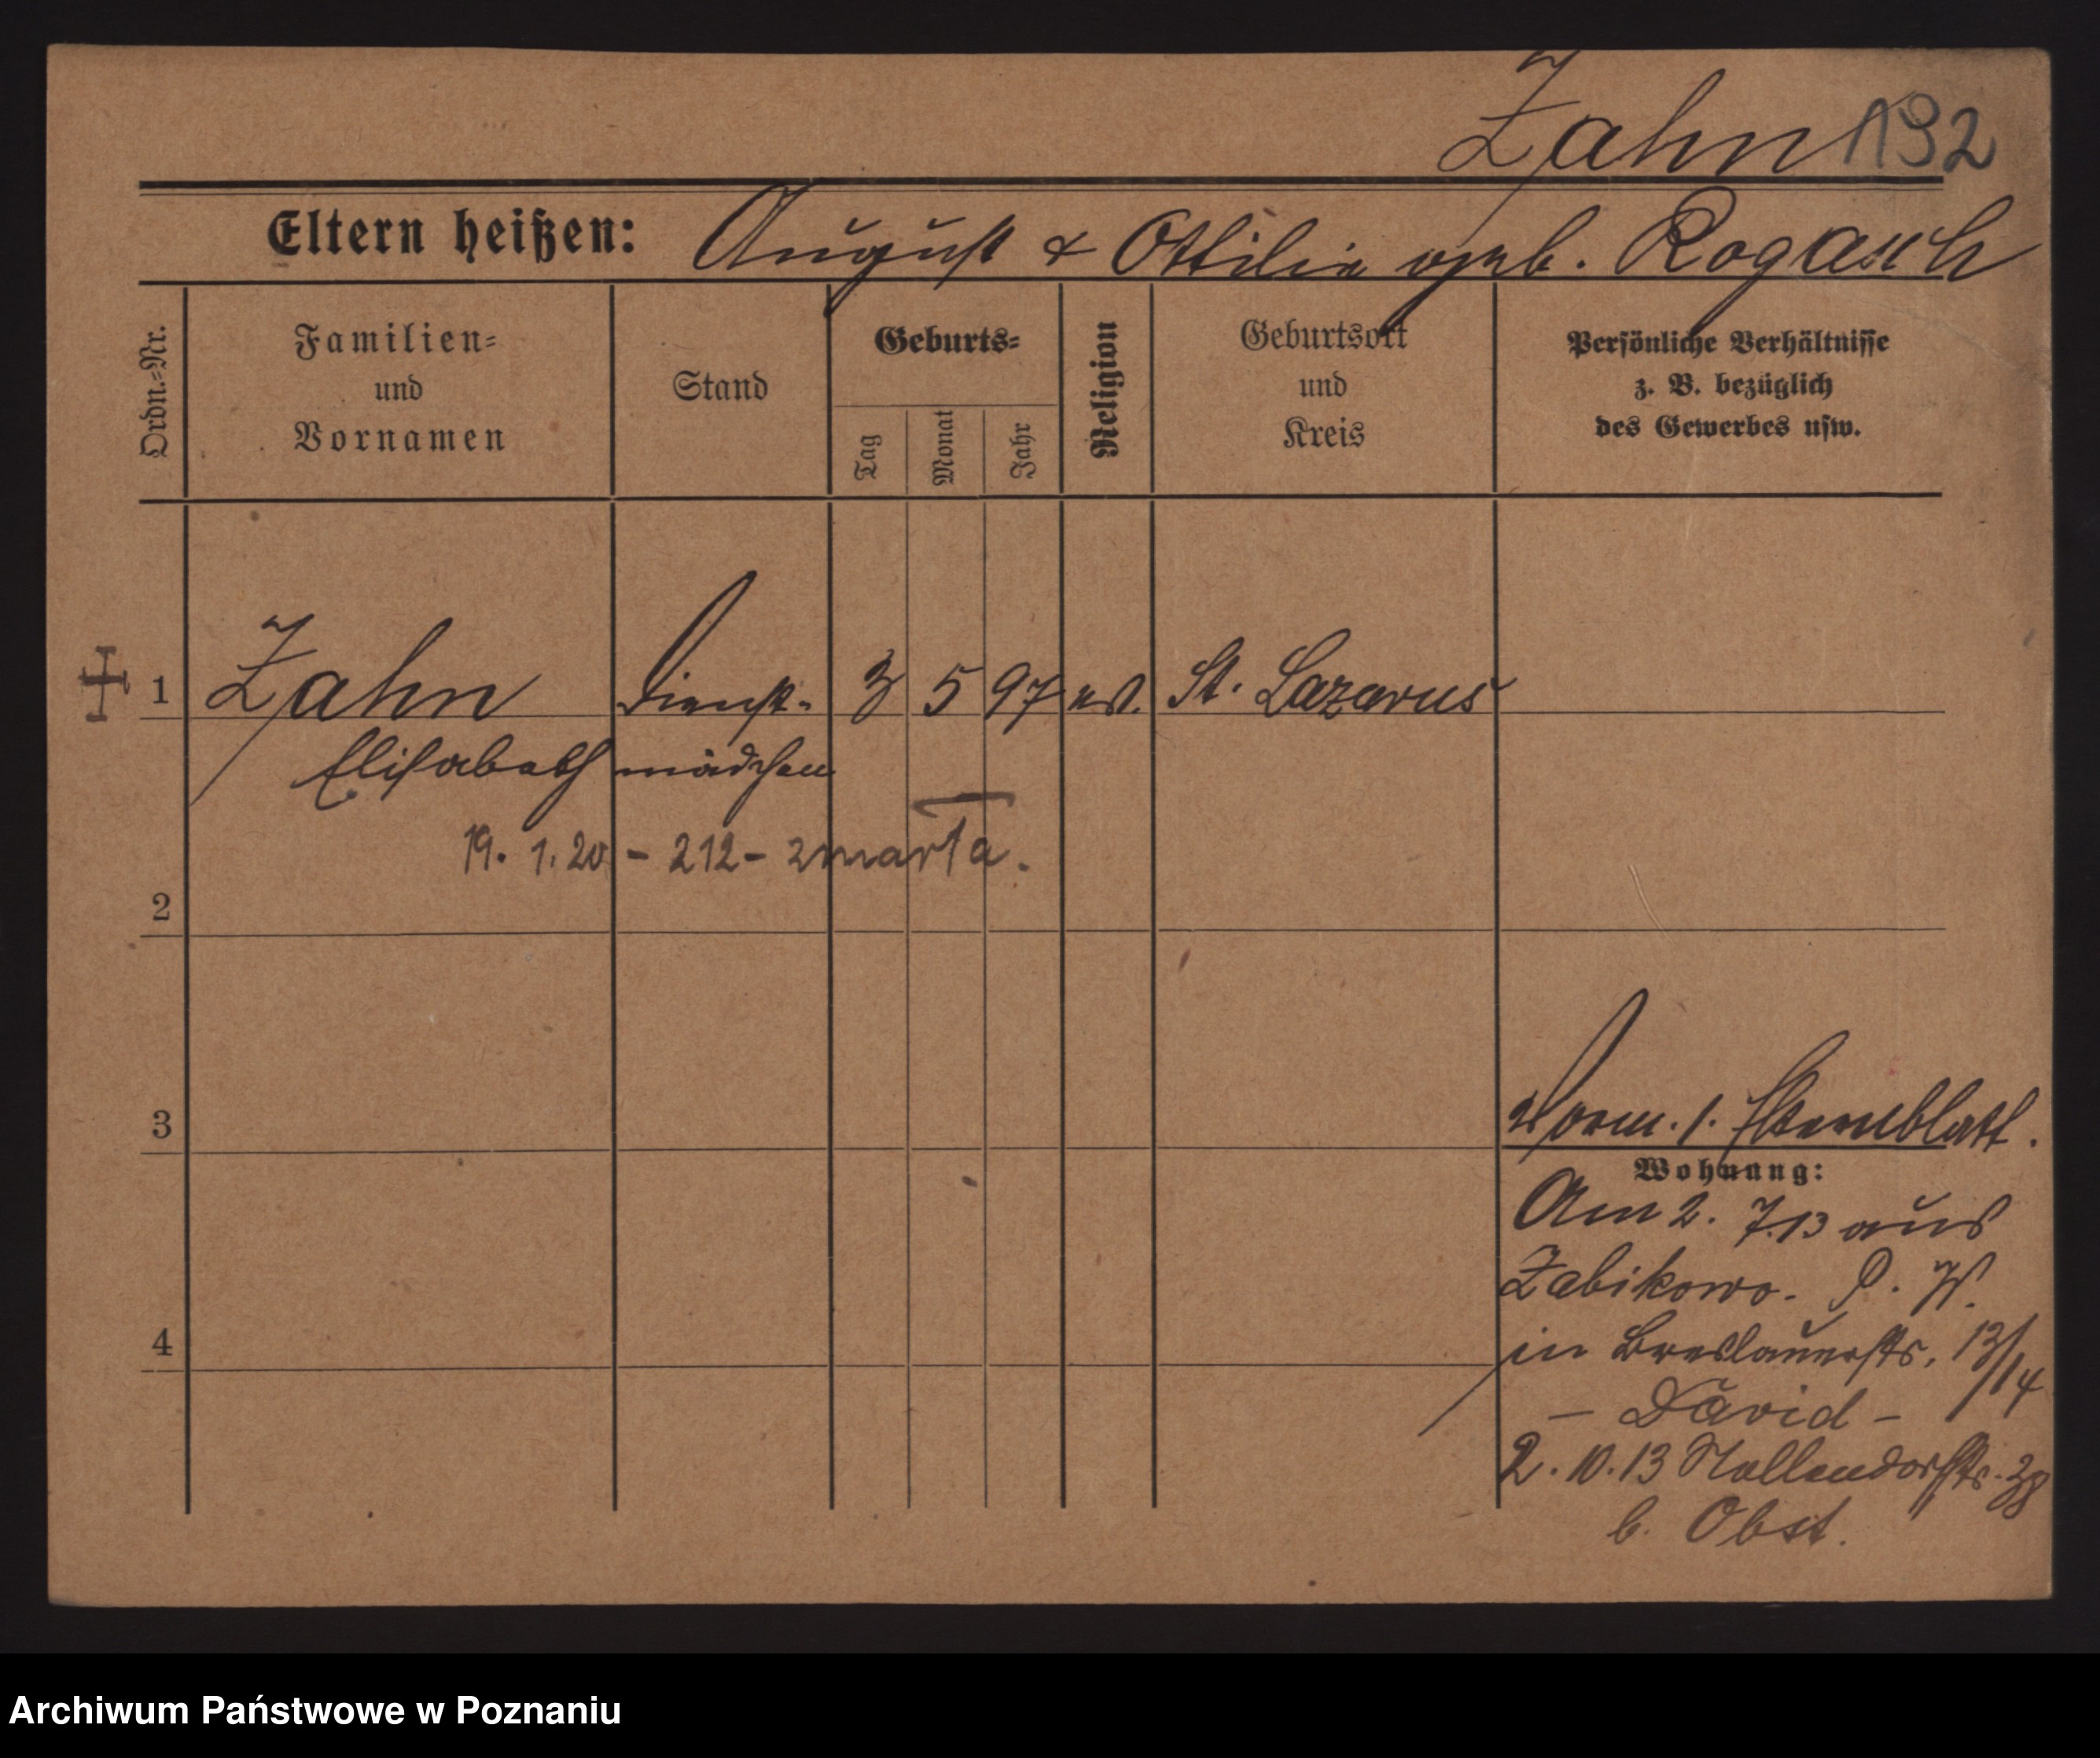 Zahn 192
Eltern heißen: August & Ottilie geb. Rogasch
Ordn.=Nr.
Familien=
und
Vornamen
Stand
Geburts=
Tag
Monat
Jahr
Religion
Geburtsort
und
Kreis
Persönliche Verhältnisse
z. B. bezüglich
des Gewerbes usw.
1 Zahn Dienst- 3 5 97 ev. St. Lazarus
Elisabeth mädchen
19. 1. 20 - 212 - zmarła.
2
3
Vorm. s. Elternblatt.
Wohnung:
Am 2. 7. 13 aus
Zabikowo. P. W.
in Breslauerstr. 13/14
- David -
2. 10. 13 Nollendorfstr. 38
b. Obst.
4
Archiwum Państwowe w Poznaniu